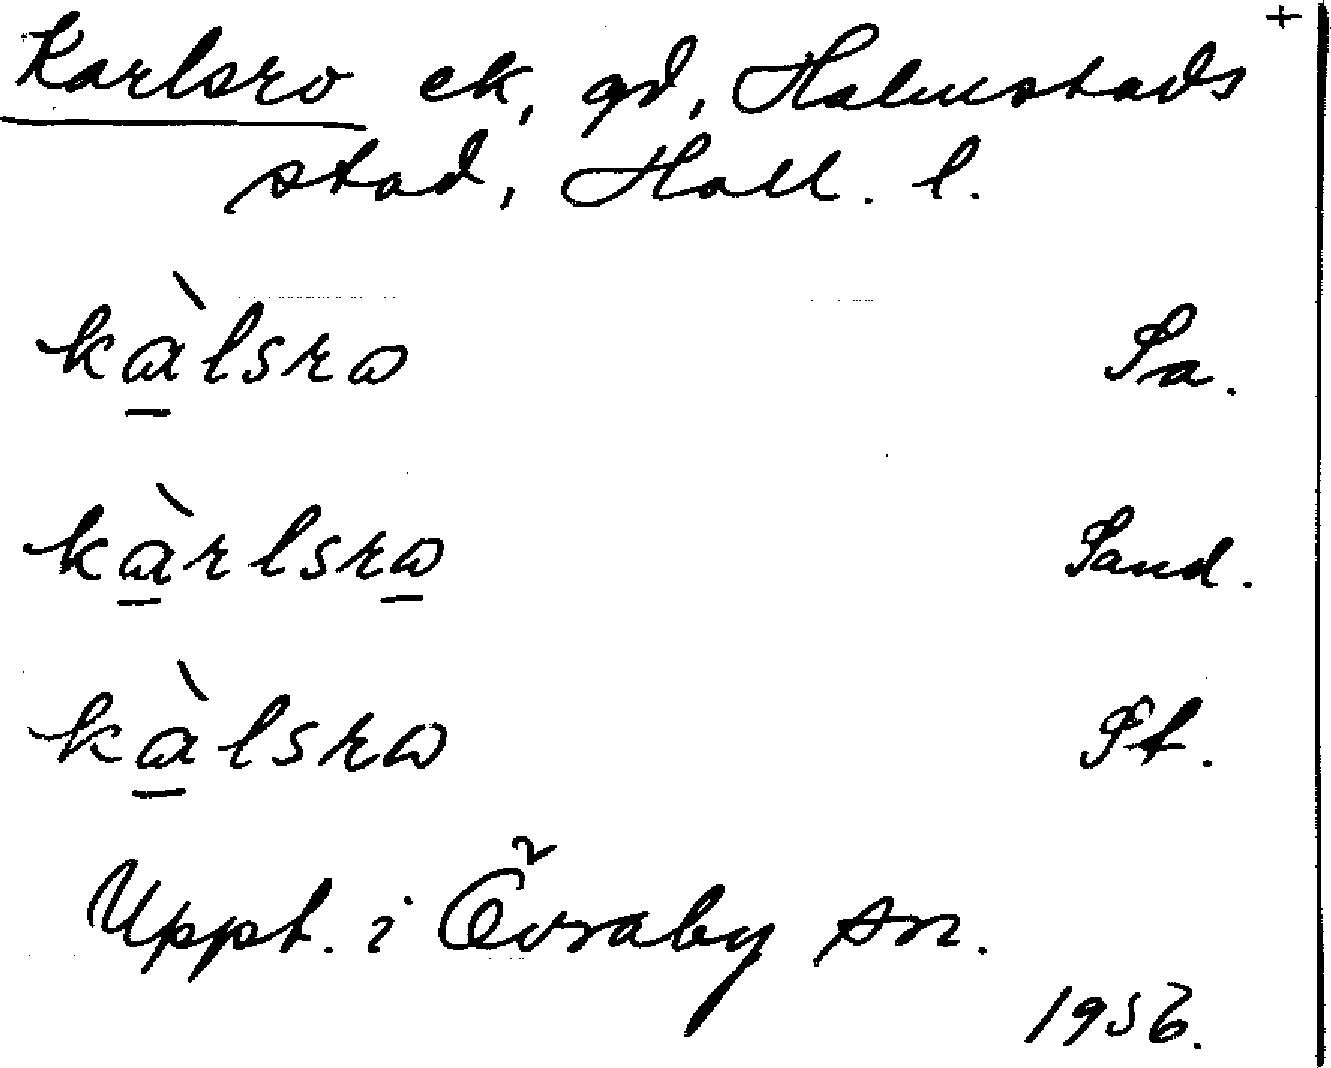 +
Karlsro ek, gd, Halmstads
stad, Hall. l.
kàlsrω Sa.
kàrlsrω Sand.
kàlsrω St.
Uppt. i Övraby sn.
1956.